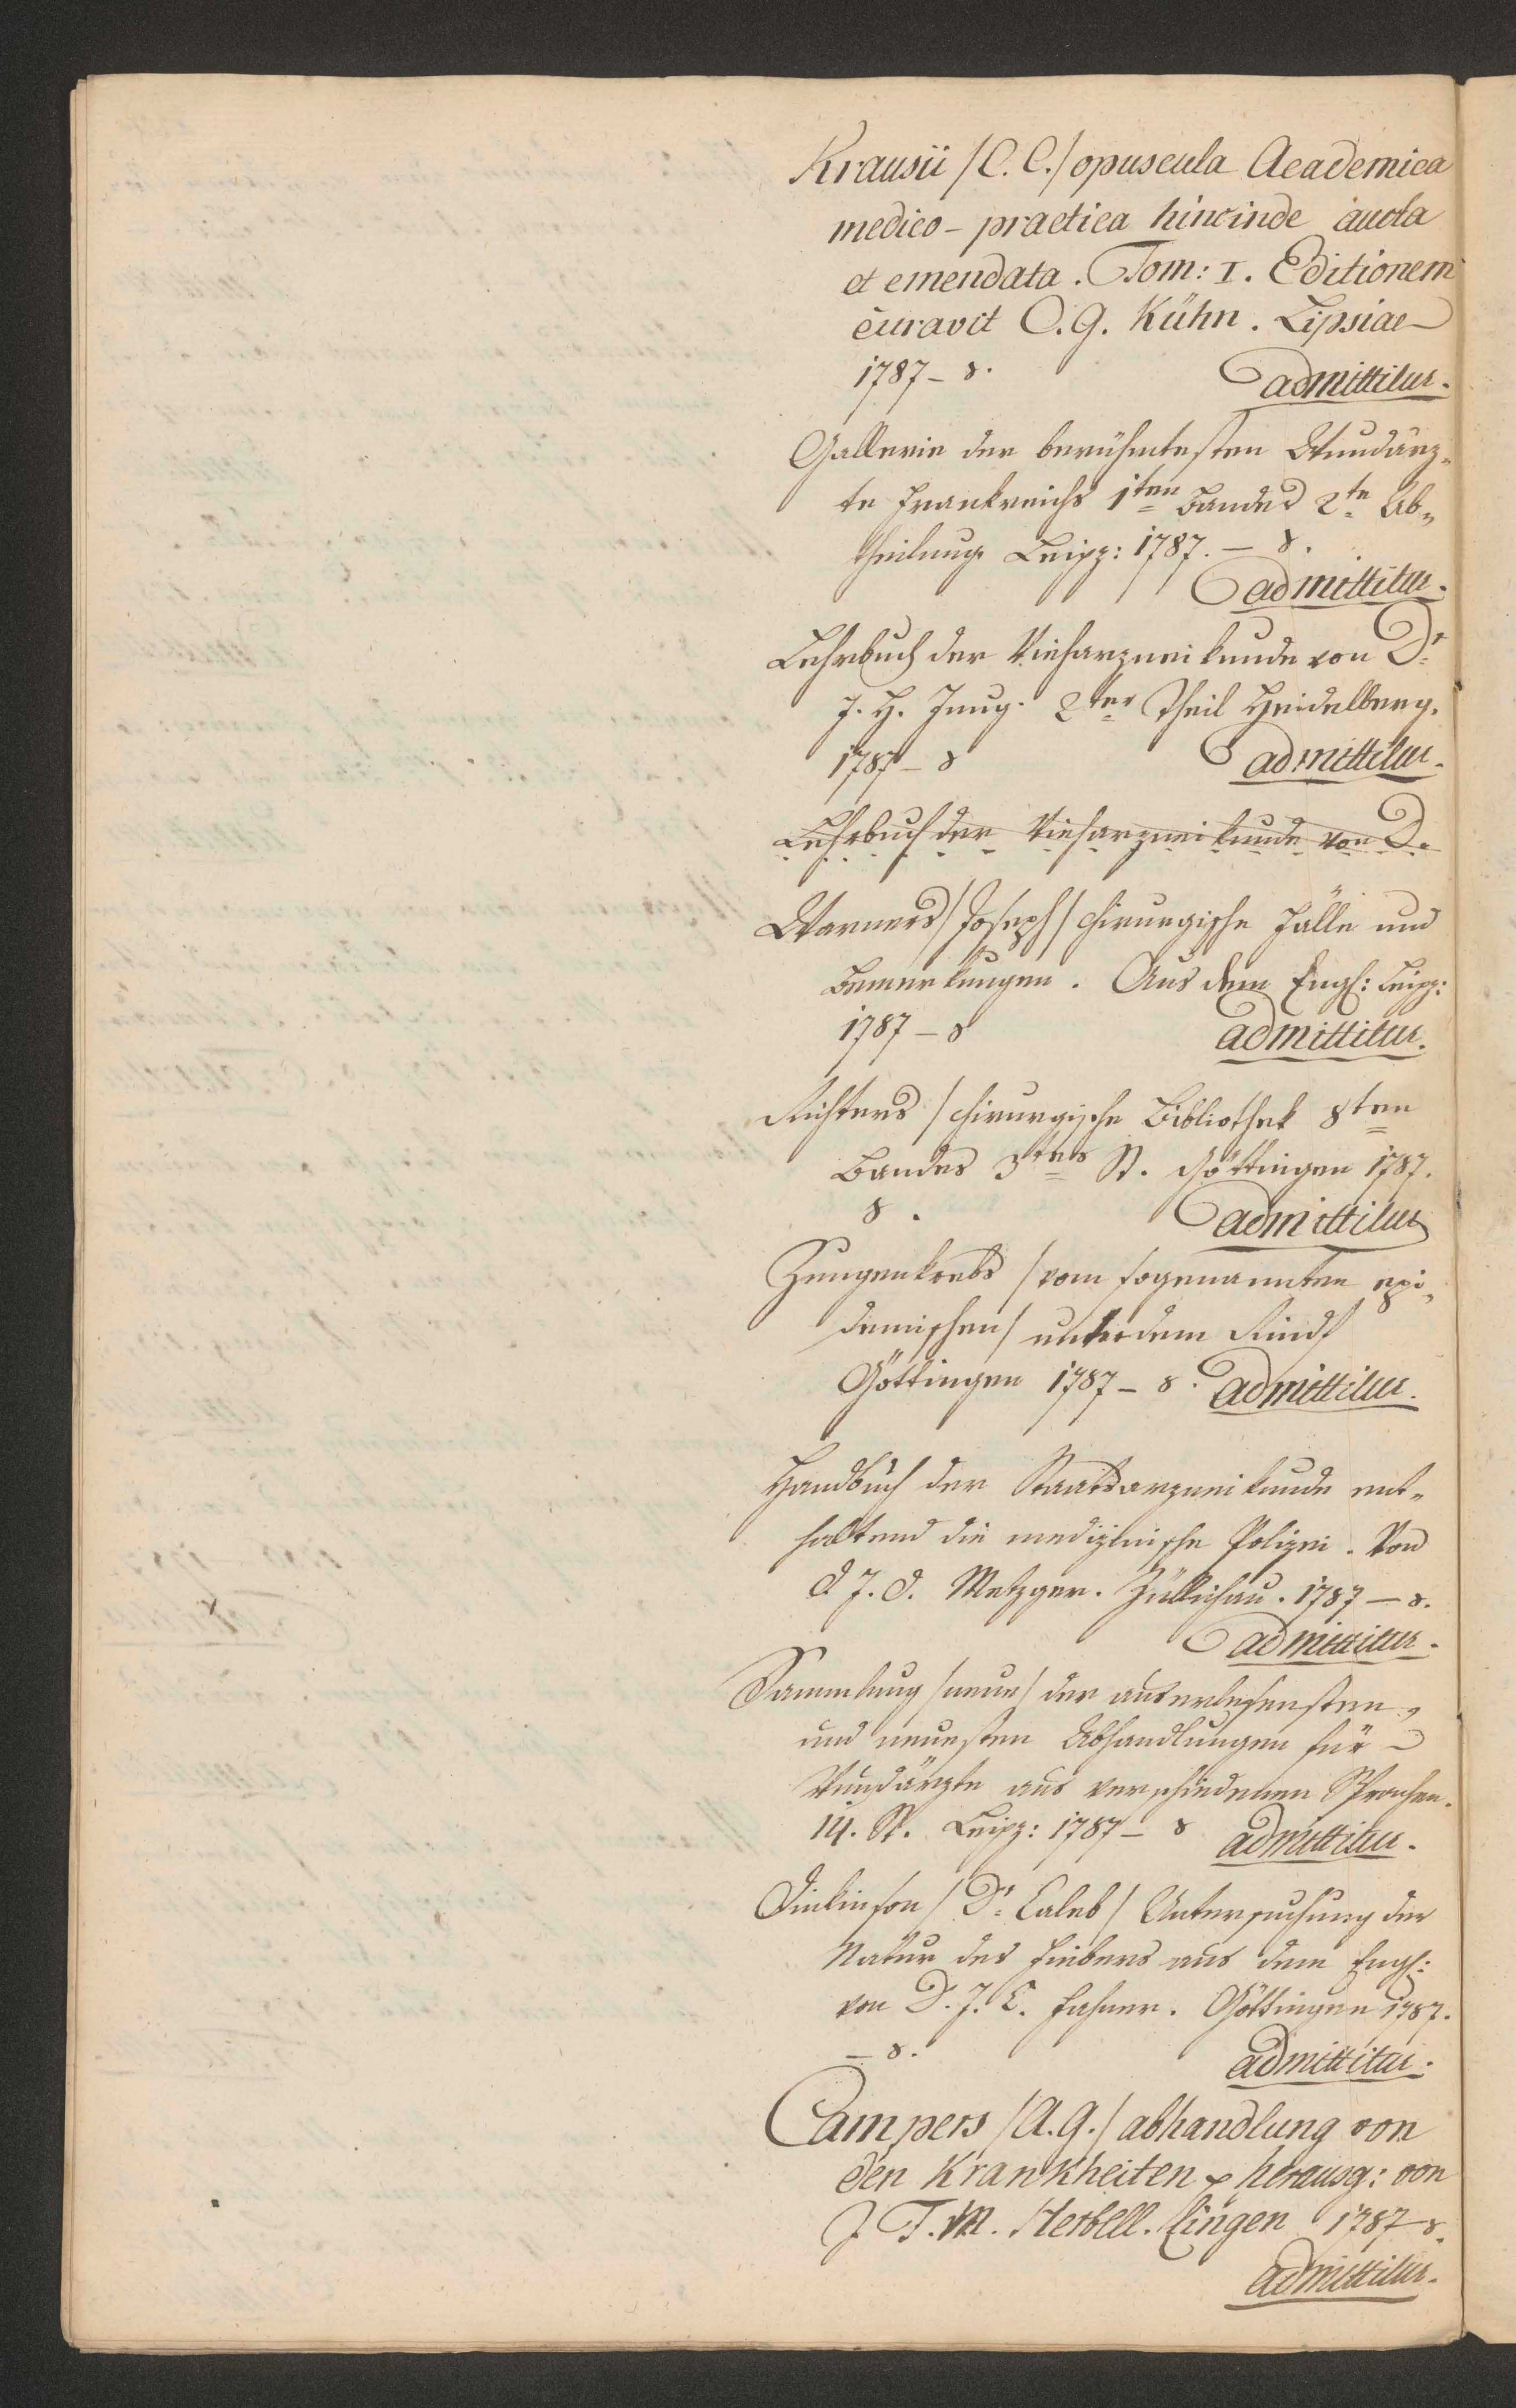 Krausii /C. C./ opuscula Academica
medico - practica hincinde aucta
et emendata. Tom: I. Editionem
curavit C. G. Kühn. Lipsiae
1787 - 8.
admittitur.
Gallerie der berühmtesten Wundärz„
te Frankreichs 1ten Bandes 2te Ab„
theilung. Leipz: 1787. - 8.
admittitur.
Lehrbuch der Vieharzneikunde von Dr
J. H. Jung. 2ter Theil Heidelberg.
1787 - 8
admittitur.
Lehrbuch der Vieharzneikunde von D.
Warners /Joseph/ chirurgische Fälle und
Bemerkungen. Aus dem Engl: Leipz:
1787 - 8
admittitur.
Richters / chirurgische Bibliothek 8ten
Bandes 3tes St. Göttingen 1787.
8.
admittitur
Zungenkrebs /vom sogenannten epi„
demischen/ unter dem Rindf
Göttingen 1787 - 8. admittitur.
Handbuch der Staatsarzneikunde ent„
haltend die medizinische Polizei. Von
D J. D. Metzger. Züllichau. 1787 - 8.
admittitur.
Sammlung /neue/ der auserlesensten,
und neuesten Abhandlungen für
Wundärzte aus verschiedenen Sprachen.
14. St. Leipz: 1787 - 8 admittitur.
Dinkinson /Dr Caleb/ Untersuchung der
Natur des Fiebers aus dem Engl:
von D. J. C. Fahner. Göttingen 1787.
- 8.
admittitur.
Campers /A. G./ abhandlung von
den Krankheiten herausg: von
J. F. M. Herbell. Lingen 1787 8.
admittitur.